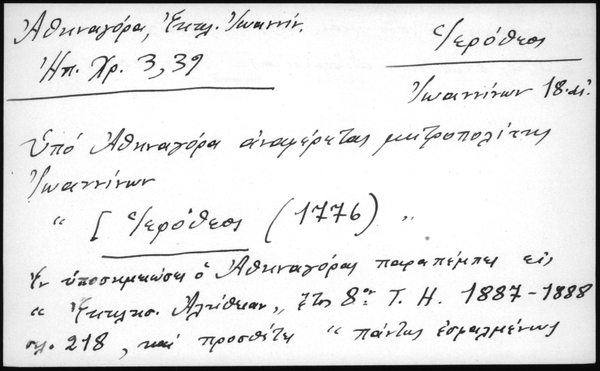 Ἀθηναγόρα, Ἐκκλ. Ἰωαννίν.
Ἠπ. Χρ. 3, 39
Ἱερόθεος
Ἰωαννίνων 18. αἰ.
Ὑπό Ἀθηναγόρα ἀναφέρεται μητροπολίτης
Ἰωαννίνων
" [ Ἱερόθεος (1776) "
Ἐν ὑποσημειώσει ὁ Ἀθηναγόρας παραπέμπει εἰς
" Ἐκκλησ. Ἀλήθειαν „ ἔτος 8ον Τ. Η. 1887-1888
σελ. 218, καί προσθέτει " πάντως ἐσφαλμένως